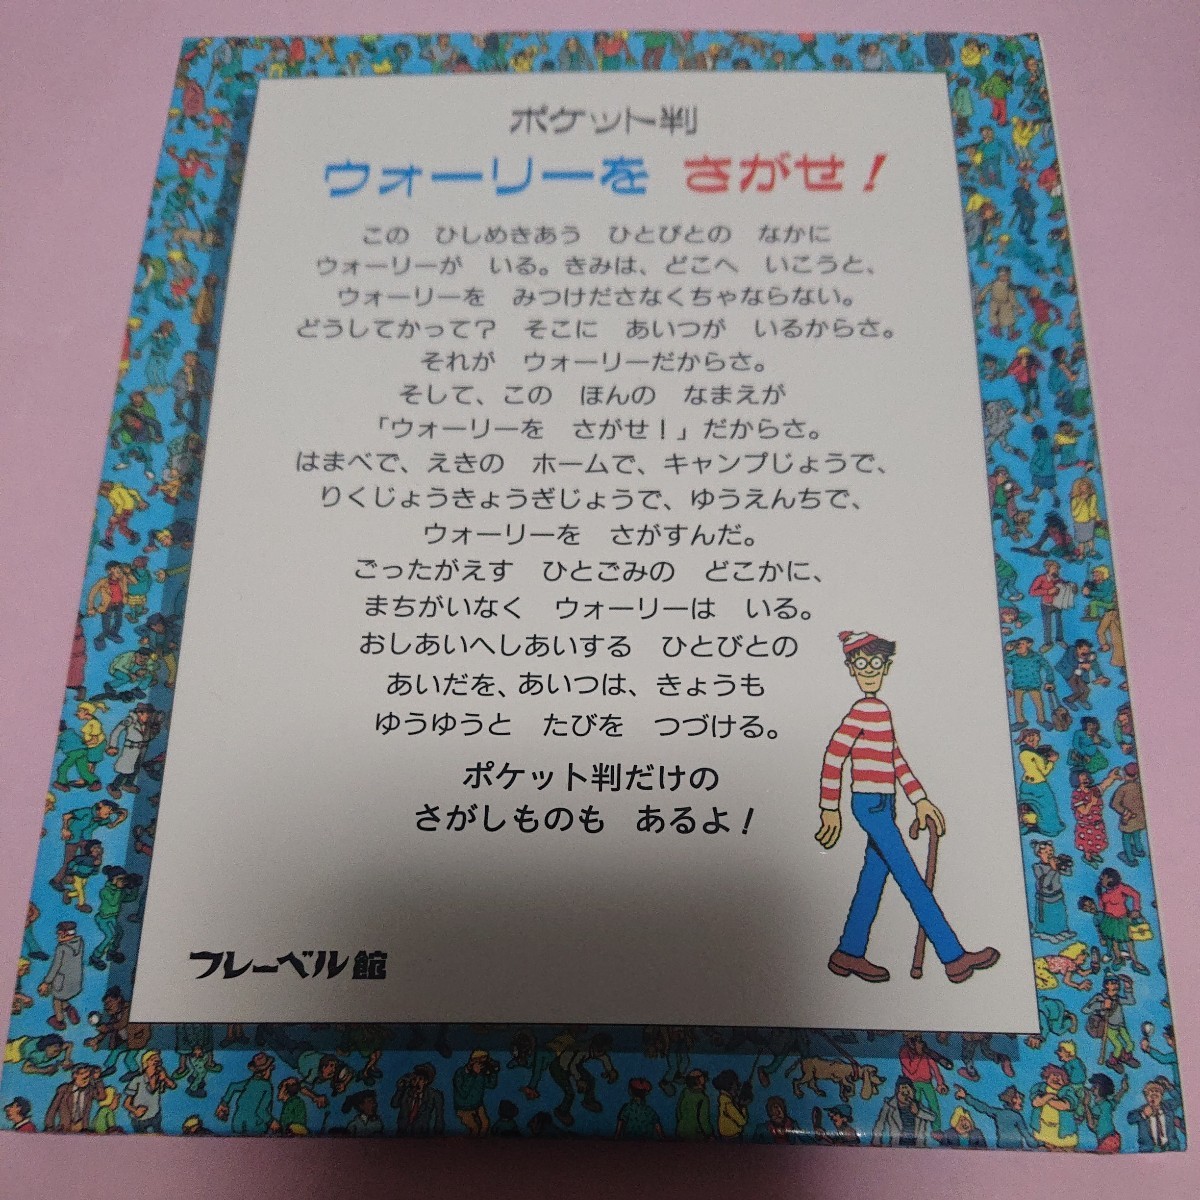 ポケット判
ウォーリーを さがせ!
この ひしめきあう ひとびとの なかに
ウォーリーが いる。きみは、どこへ いこうと、
ウォーリーを みつけださなくちゃならない。
どうしてかって? そこに あいつが いるからさ。
それが ウォーリーだからさ。
そして、この ほんの なまえが
「ウォーリーを さがせ!」だからさ。
はまべで、えきの ホームで、キャンプじょうで、
りくじょうきょうぎじょうで、ゆうえんちで、
ウォーリーを さがすんだ。
ごったがえす ひとごみの どこかに、
まちがいなく ウォーリーは いる。
おしあいへしあいする ひとびとの
あいだを、あいつは、きょうも
ゆうゆうと たびを つづける。
ポケット判だけの
さがしものも あるよ!
フレーベル館